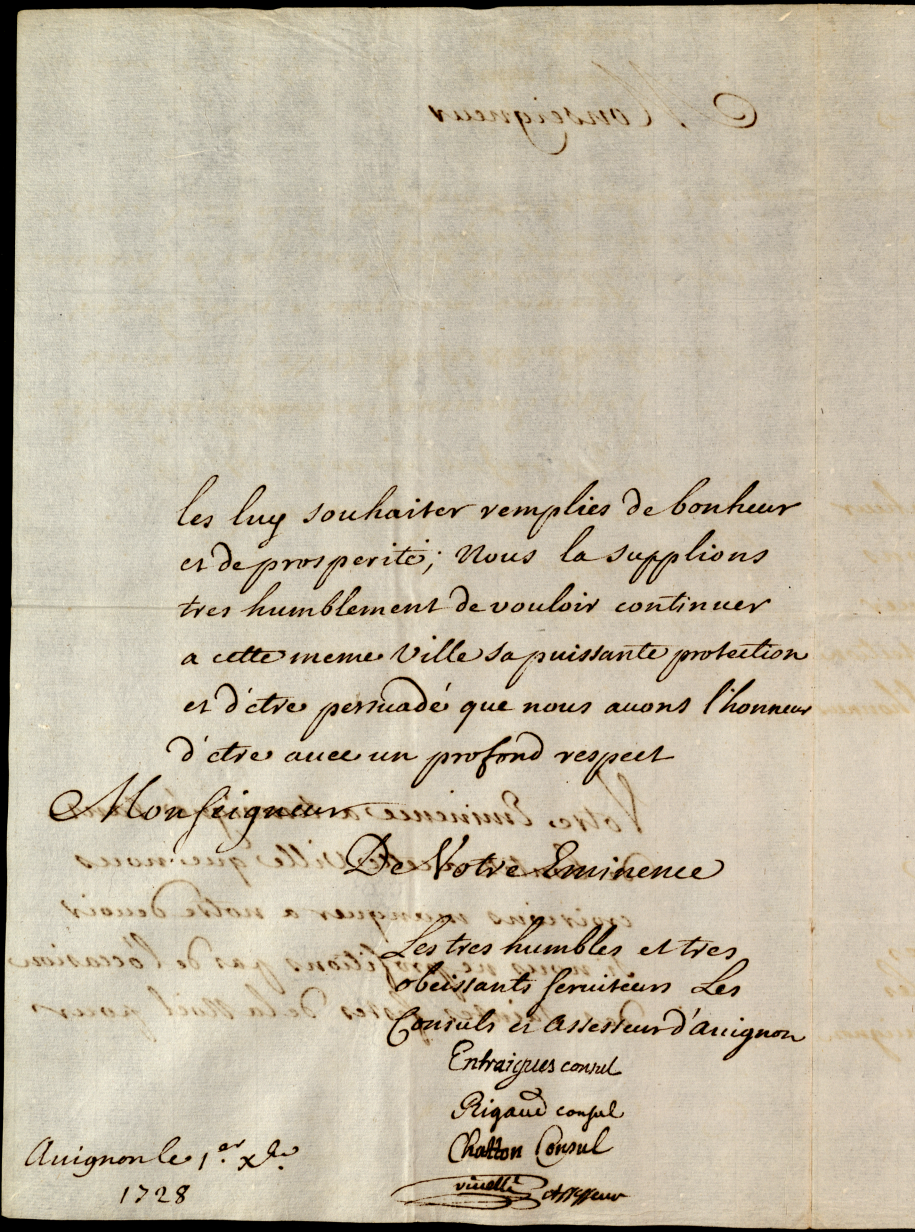 les luy souhaiter remplies de bonheur
et de prosperité; Nous la supplions
tres humblement de vouloir continuer
a cette meme Ville sa puissante protection
et d'étre persuadé que nous auons l'honneur
d'étre auec un profond respect
Monseigneur
De Votre Eminence
Les tres humbles et tres
obeissants seruiteurs Les
Consuls et Assesseur d'Auignon
Entraigues consul
Rigaud consul
Chatton Consul
Assesseur
Auignon le 1.er x.bre
1728